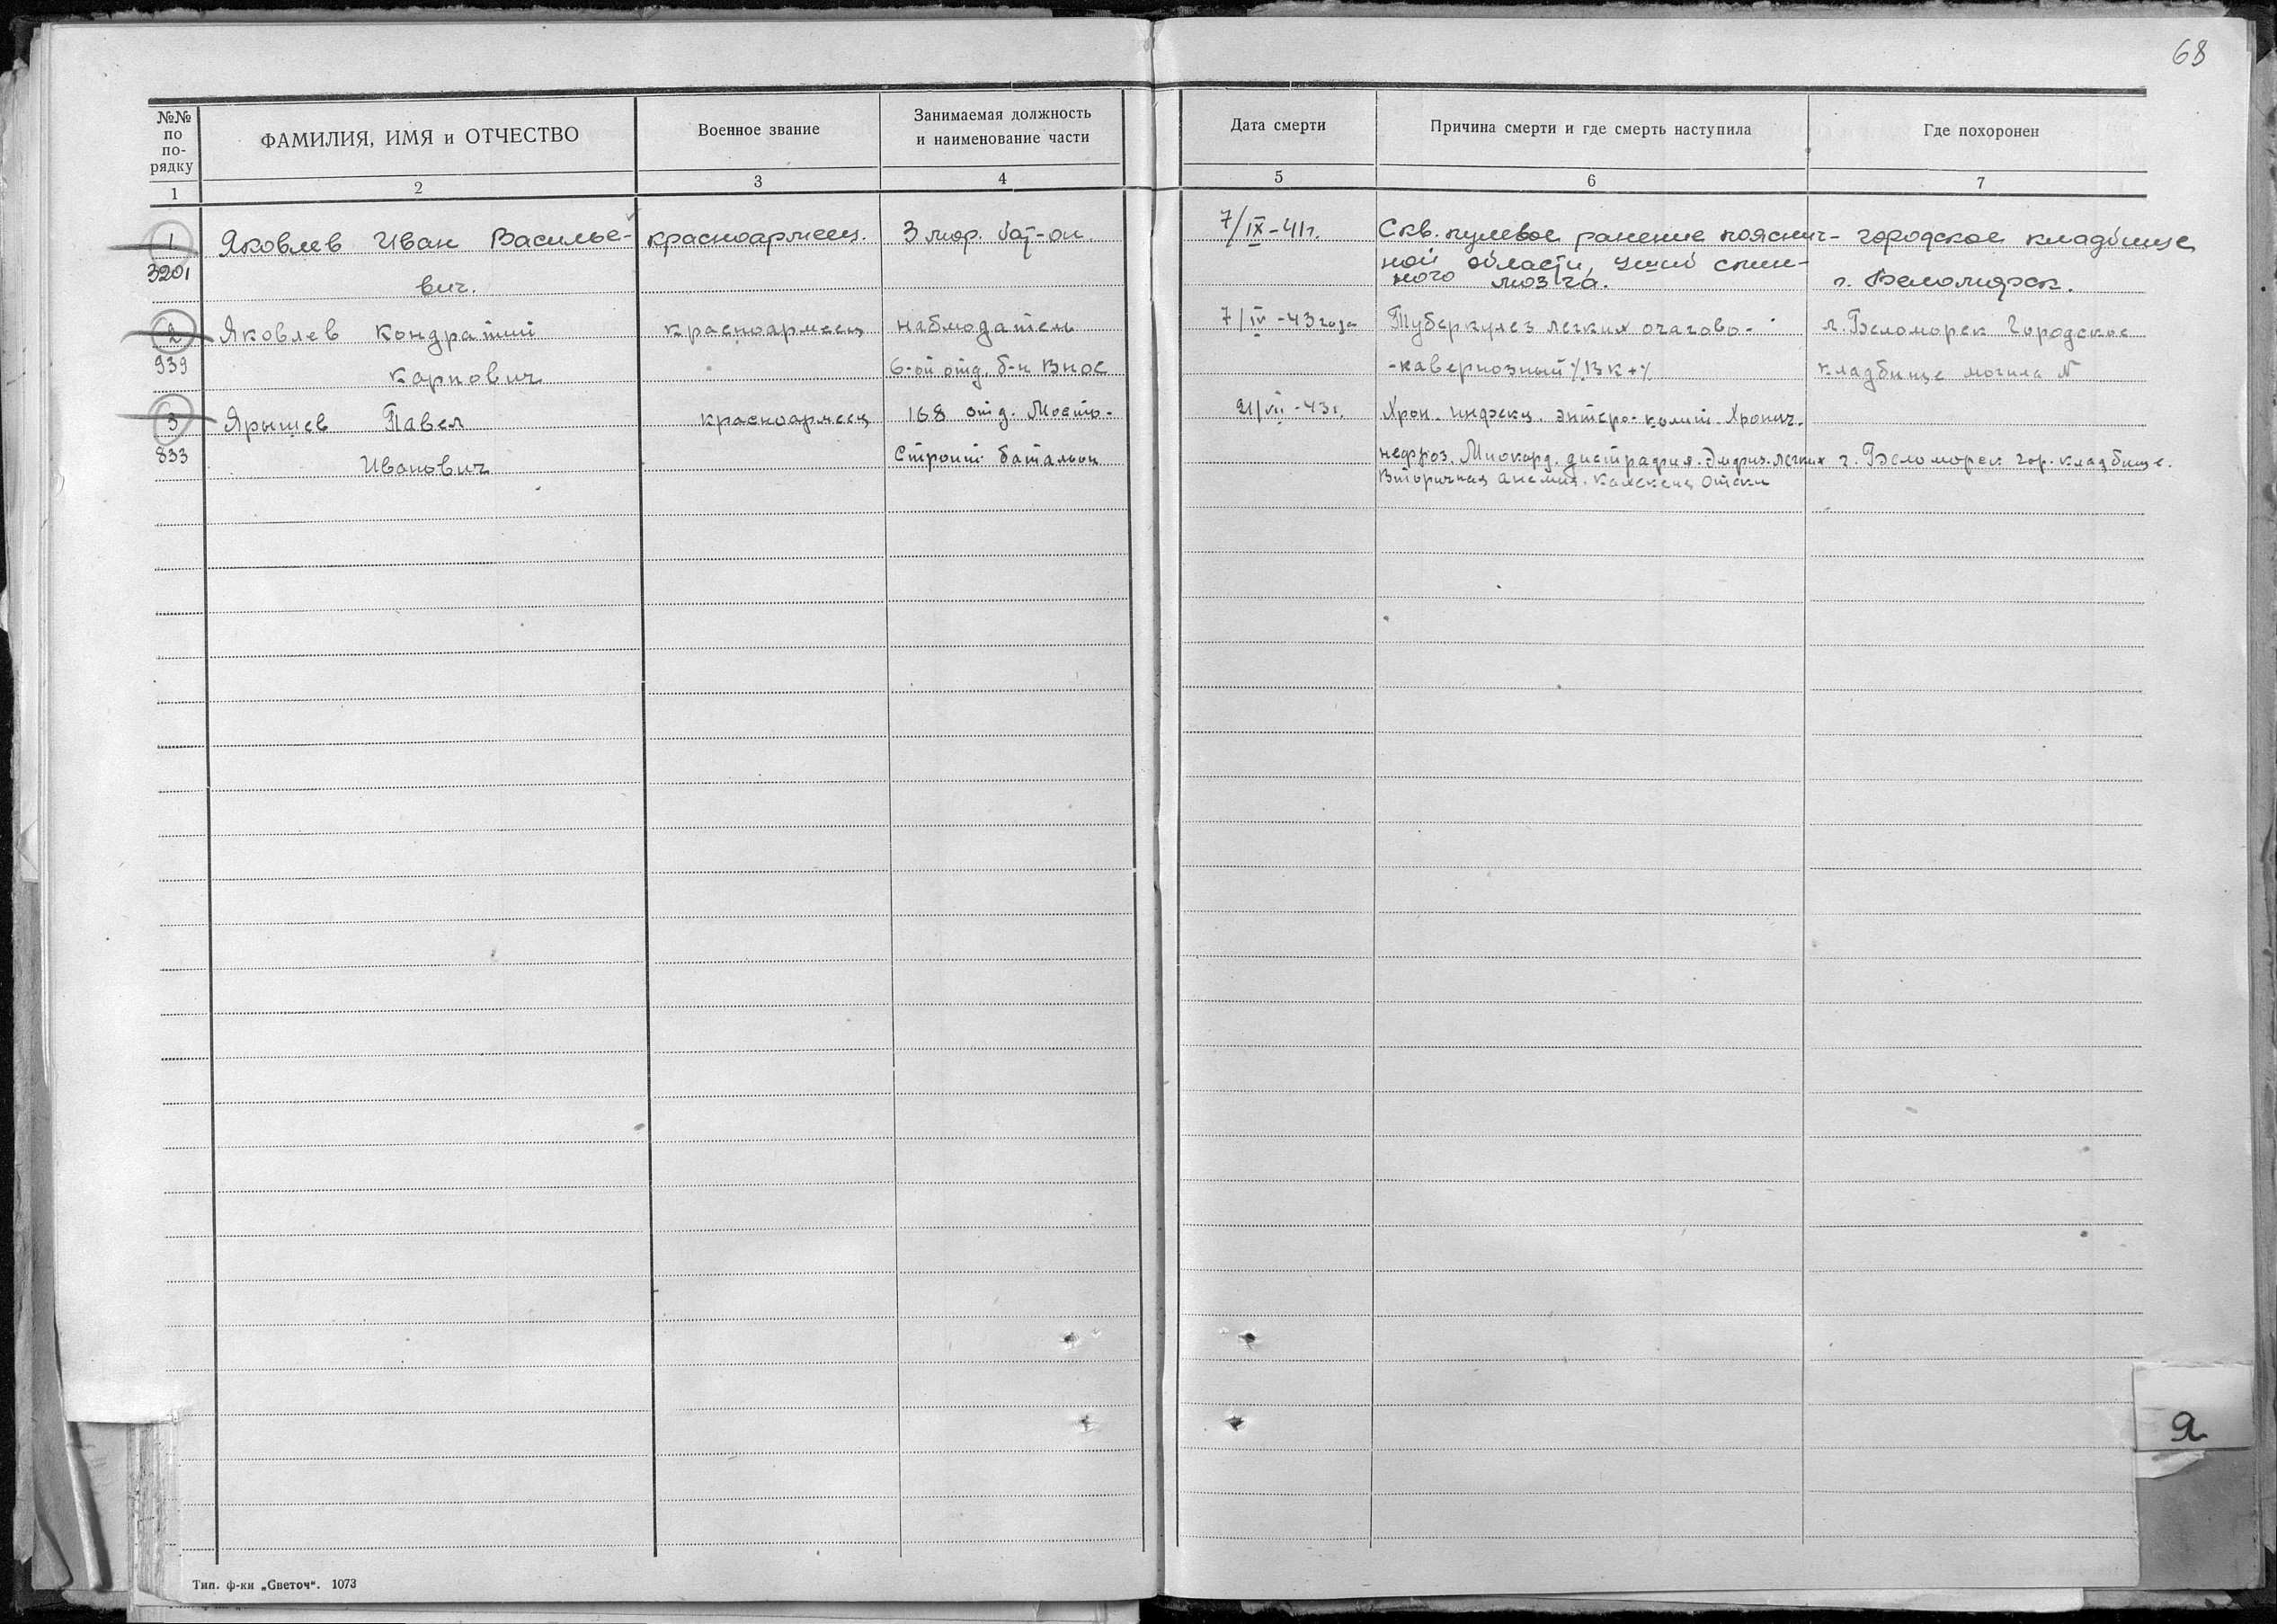 68
№№ по по- рядку
ФАМИЛИЯ, ИМЯ и ОТЧЕСТВО
Военное звание
Занимаемая должность
и наименование части
Дата смерти
Причина смерти и где смерть наступила
Где похоронен
1 2 3 4 5 6 7
1 Яковлев Иван Василье- красноармеец. 3 мор. бат-он. 7/IX-41г. Скв. пулевое ранение пояснич- городское кладбище
3201 вич. ной области, ушиб спин-
ного мозга. г. Беломорск.
2 Яковлев Кондратий красноармеец наблюдатель 7/IV-43 года Туберкулез легких очагово- г. Беломорск Городское
939 Карпович 6-ой отд. б-н Внос -кавернозный /ВК+/ кладбище могила №
3 Ярышев Павел красноармеец 168 отд. Мосто- 21/VII-43г. Хрон. инфекц. энтеро-колит. Хронич.
833 Иванович Строит. батальон нефроз. Миокард. дистрафия. Эмфиз. легких г. Беломорск гор. кладбище.
Вторичная анемия. Отеки
Я
Тип. ф-ки „Светоч". 1073